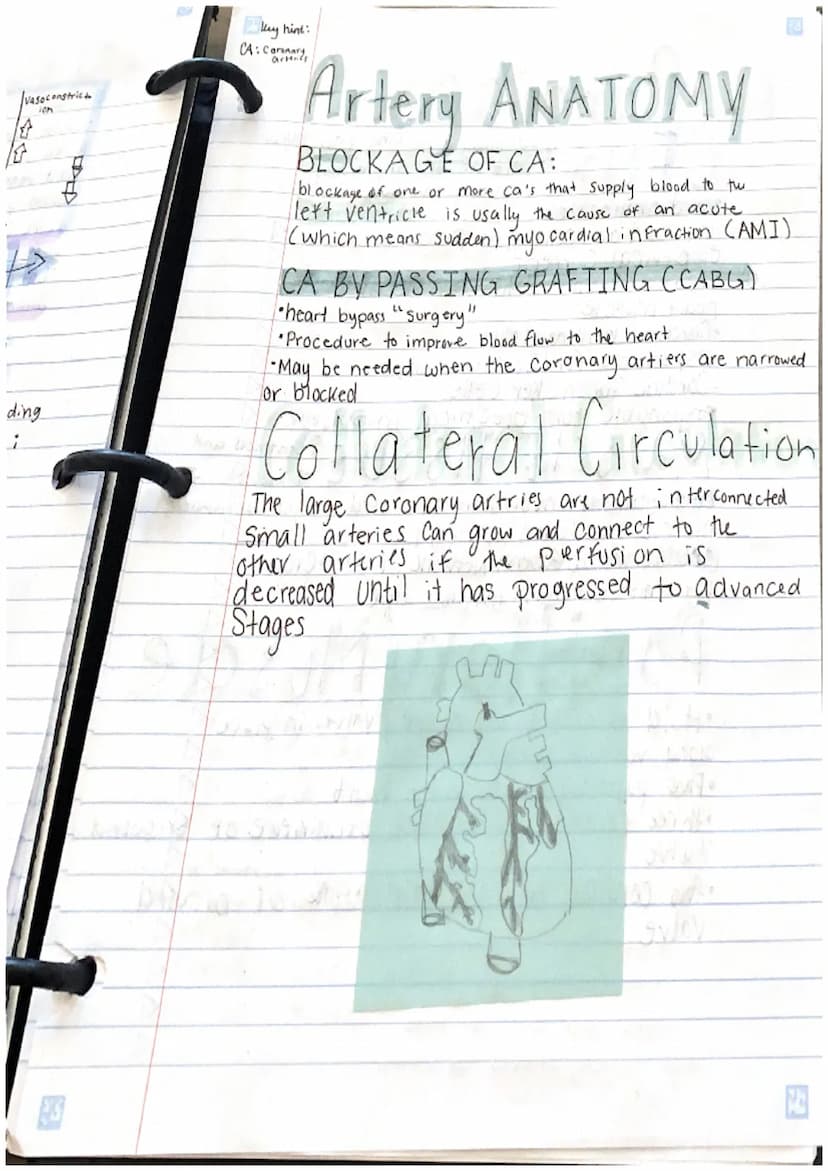 key hint:
CA: Coronary
arteries
Artery ANATOMY
BLOCKAGE OF CA:
blockage of one or more ca's that supply blood to the
left ventricle is usally the cause of an acute
(which means sudden) myocardial infraction (AMI)
CA BY PASSING GRAFTING (CABG)
•heart bypass "surgery"
•Procedure to improve blood flow to the heart
•May be needed when the coronary artiers are narrowed
or blocked
Collateral Circulation
The large coronary artries are not interconnected
small arteries can grow and connect to the
other arteries if the perfusion is
decreased until it has progressed to advanced
Stages
vasoconstrict
ion
ding
;